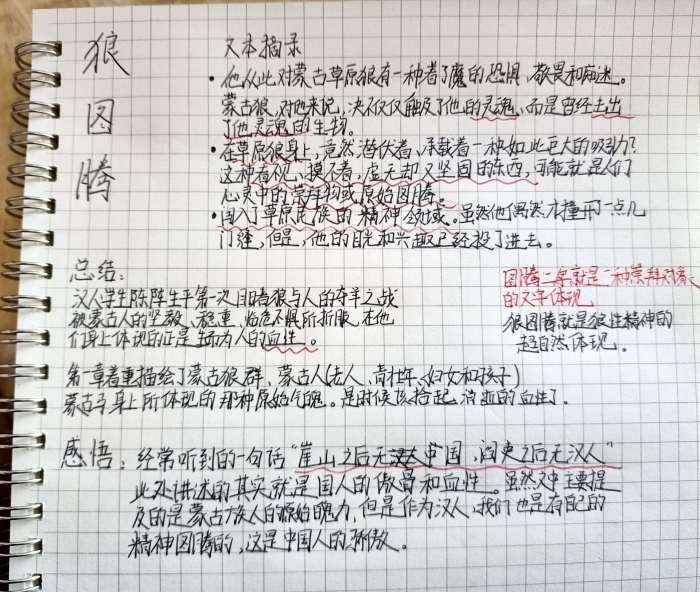 狼图腾
文本摘录
• 他从此对蒙古草原狼有一种着了魔的恐惧、敬畏和痴迷。
蒙古狼,对他来说,决不仅仅触及了他的灵魂、而是曾经击出
了他灵魂的生物。
• 在草原狼身上,竟然潜伏着、承载着一种如此巨大的吸引力?
这种看不见、摸不着,虚无却又坚固的东西,可能就是人们
心灵中的崇拜物或原始图腾。
• 闯入了草原民族的精神领域。虽然他偶然才撞开一点儿
门缝,但是,他的目光和兴趣已经投了进去。
总结:
汉人学生陈阵生平第一次目睹狼与人的夺羊之战
被蒙古人的坚毅、稳重、临危不惧所折服。在他
们身上体现的正是生而为人的血性。
图腾二字就是一种崇拜对象
的文字体现
狼图腾就是狼性精神的
超自然体现。
第一章着重描绘了蒙古狼群、蒙古人(老人、青壮年、妇女和孩子)
蒙古马身上所体现的那种原始气魄。是时候该拾起消逝的血性了.
感悟:经常听到的一句话"崖山之后无中国,阎吏之后无汉人"
此处讲述的其实就是国人的傲骨和血性。虽然文中主要提
及的是蒙古族人的原始魄力,但是作为汉人,我们也是有自己的
精神图腾的,这是中国人的骄傲。